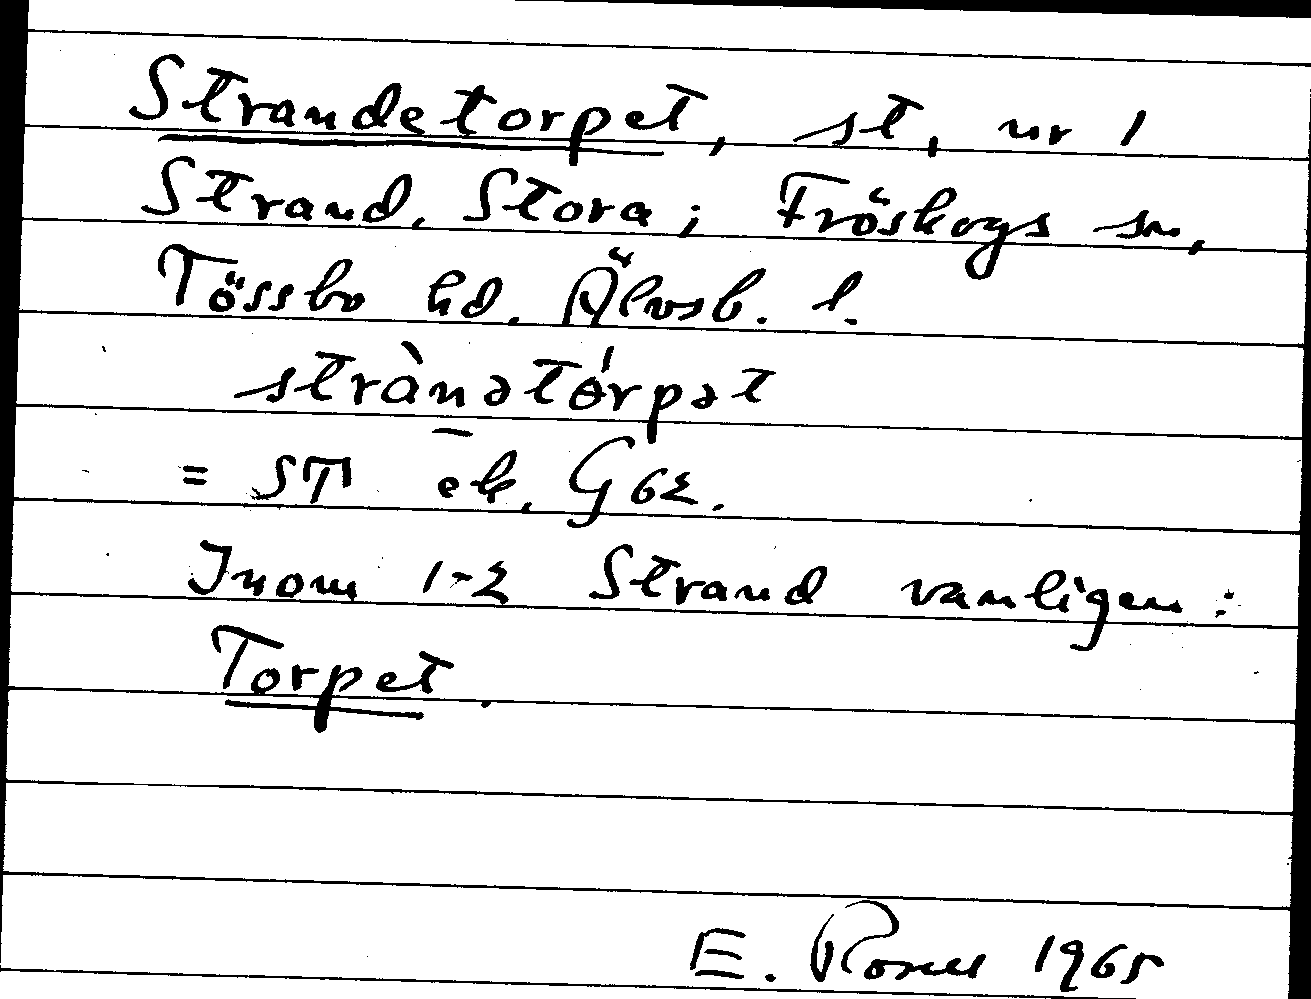 Strandetorpet, st, nr 1
Strand, Stora; Fröskogs sn,
Tössbo hd. Älvsb. l.
strànətórpət
= ST ek. G 62.
Inom 1-2 Strand vanligen:
Torpet.
E. 1965